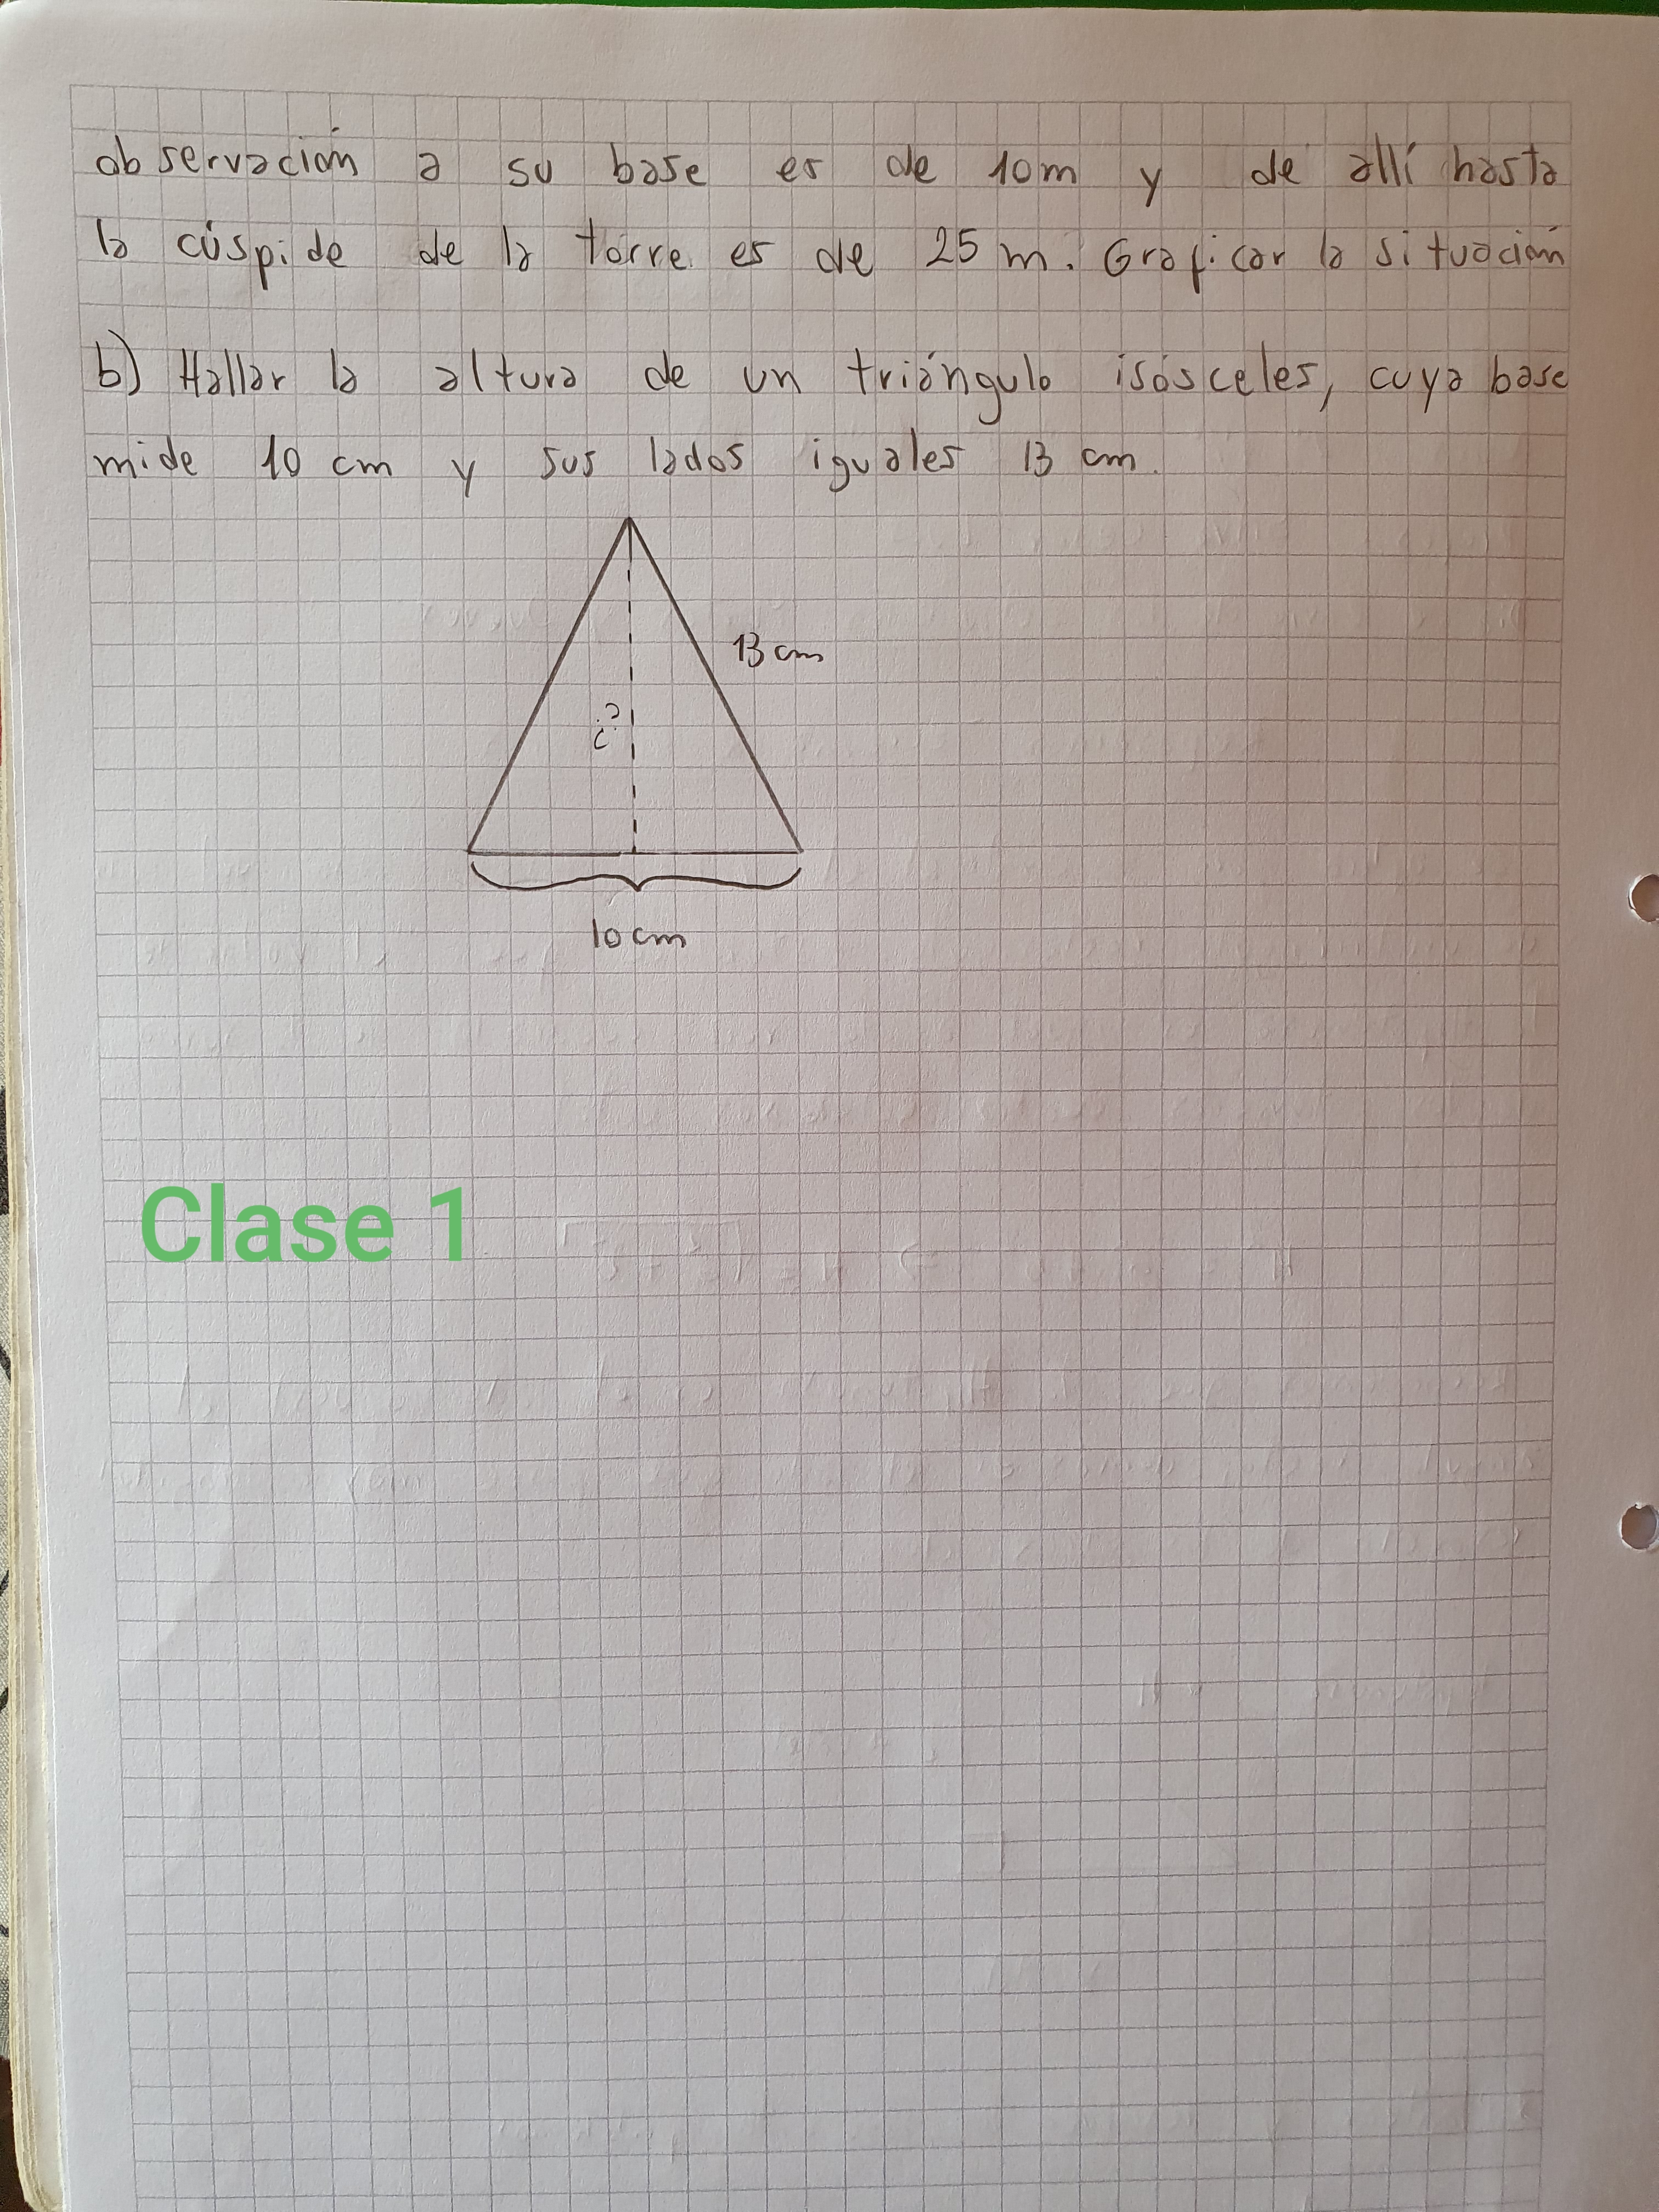 observación a su base es de 10m y de allí hasta
la cúspide de la torre es de 25 m. Graficar la situación
b) Hallar la altura de un triángulo isósceles, cuya base
mide 10 cm y sus lados iguales 13 cm.
13 cm
¿?
10 cm
Clase 1